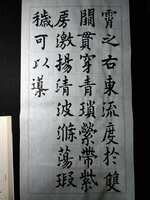 霄之右東流度於雙
闕貫穿青瑣縈帶紫
房激揚清波滌蕩瑕
穢可以導